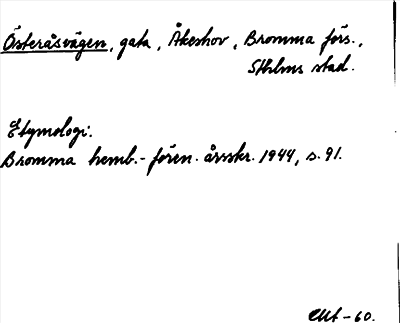 Österåsvägen, gata, Åkeshov, Bromma förs.,
Sthlms stad.
Etymologi.
Bromma hemb.-fören. årsskr. 1944, s. 91.
-60.